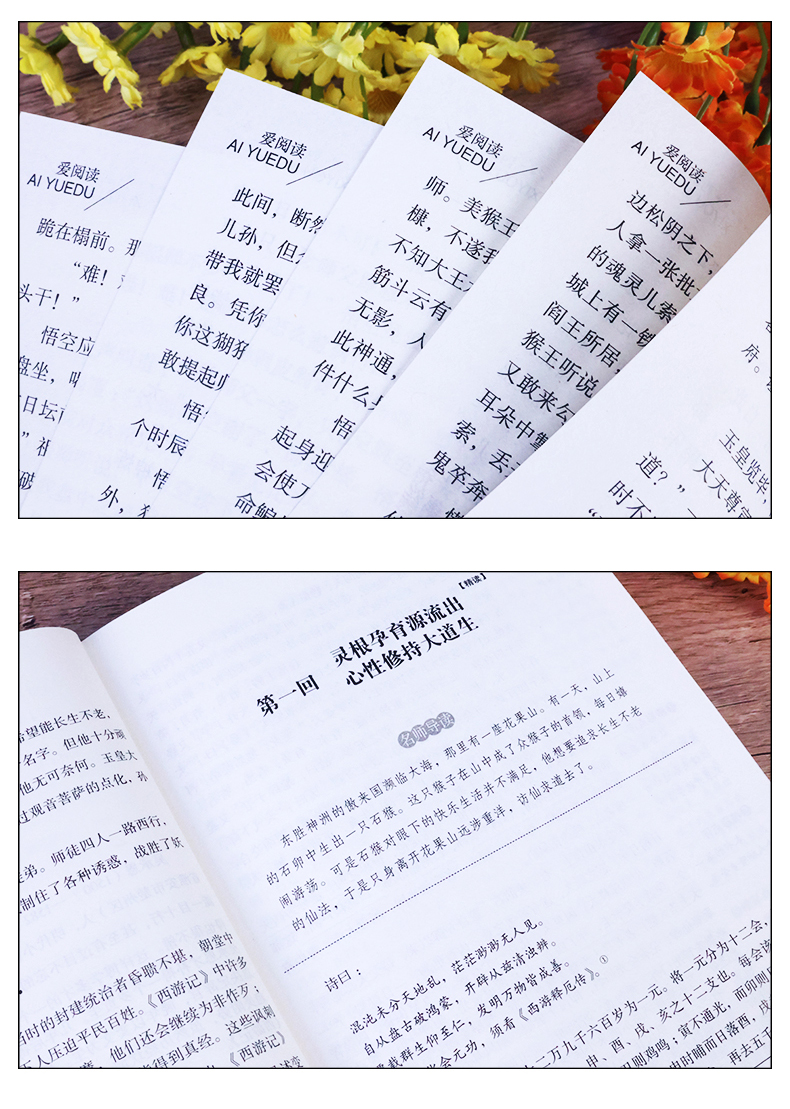 爱阅读
AI YUEDU
跪在榻前。那
“难！
头干！”
悟空应
盘坐，
日坛
”祖
破
爱阅读
AI YUEDU
此间，断然
儿孙，但
带我就罢
良。凭你
你这猢狲
敢提起师
悟
个时辰
悟
外，
爱阅读
AI YUEDU
师。美猴王
槺，不遂我
不知大王
筋斗云有
无影，人
此神通，
件什么
悟
起身迎
会使刀
命
爱阅读
AI YUEDU
边松阴之下，
人拿一张批
的魂灵儿索
城上有一铁
阎王所居，
猴王听说
又敢来公
耳朵中掣
索，丢
鬼卒奔
府。
玉皇览毕，
大天尊宣
道？”
时不
希望能长生不老，
名字。但他十分顽
他无可奈何。玉皇大
过观音菩萨的点化，孙
徒弟。师徒四人一路西行，
制住了各种诱惑，战胜了妖
当时的封建统治者昏聩不堪，朝堂中
压迫平民百姓。《西游记》中许多
，他们还会继续为非作歹；
能得到真经。这些讽刺
《西游记》
【精读】
第一回 灵根孕育源流出
心性修持大道生
名师导读
东胜神洲的傲来国濒临大海，那里有一座花果山。有一天，山上
的石卵中生出一只石猴。这只猴子在山中成了众猴子的首领，每日嬉
闹游荡。可是石猴对眼下的快乐生活并不满足，他想要追求长生不老
的仙法，于是只身离开花果山远涉重洋，访仙求道去了。
诗曰：
混沌未分天地乱，茫茫渺渺无人见。
自从盘古破鸿蒙，开辟从兹清浊辨。
覆载群生仰至仁，发明万物皆成善。
会元功，须看《西游释厄传》。①
十二万九千六百岁为一元。将一元分为十二会，
申、酉、戌、亥之十二支也。每会该
则鸡鸣；寅不通光，而卯则日
申时晡而日落酉，戌
再去五千